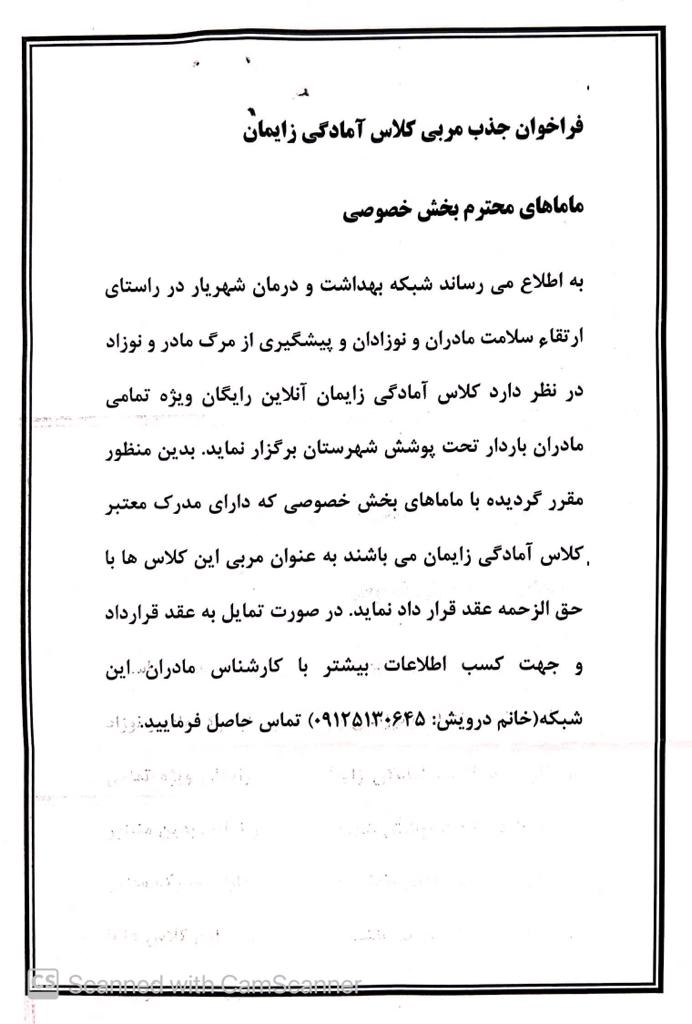 فراخوان جذب مربی کلاس آمادگی زایمان
ماماهای محترم بخش خصوصی
به اطلاع می رساند شبکه بهداشت و درمان شهریار در راستای
ارتقاء سلامت مادران و نوزادان و پیشگیری از مرگ مادر و نوزاد
در نظر دارد کلاس آمادگی زایمان آنلاین رایگان ویژه تمامی
مادران باردار تحت پوشش شهرستان برگزار نماید. بدین منظور
مقرر گردیده با ماماهای بخش خصوصی که دارای مدرک معتبر
کلاس آمادگی زایمان می باشند به عنوان مربی این کلاس ها با
حق الزحمه عقد قرار داد نماید. در صورت تمایل به عقد قرارداد
و جهت کسب اطلاعات بیشتر با کارشناس مادران این
شبکه(خانم درویش: ۰۹۱۲۵۱۳۰۶۴۵) تماس حاصل فرمایید.
CS Scanned with CamScanner